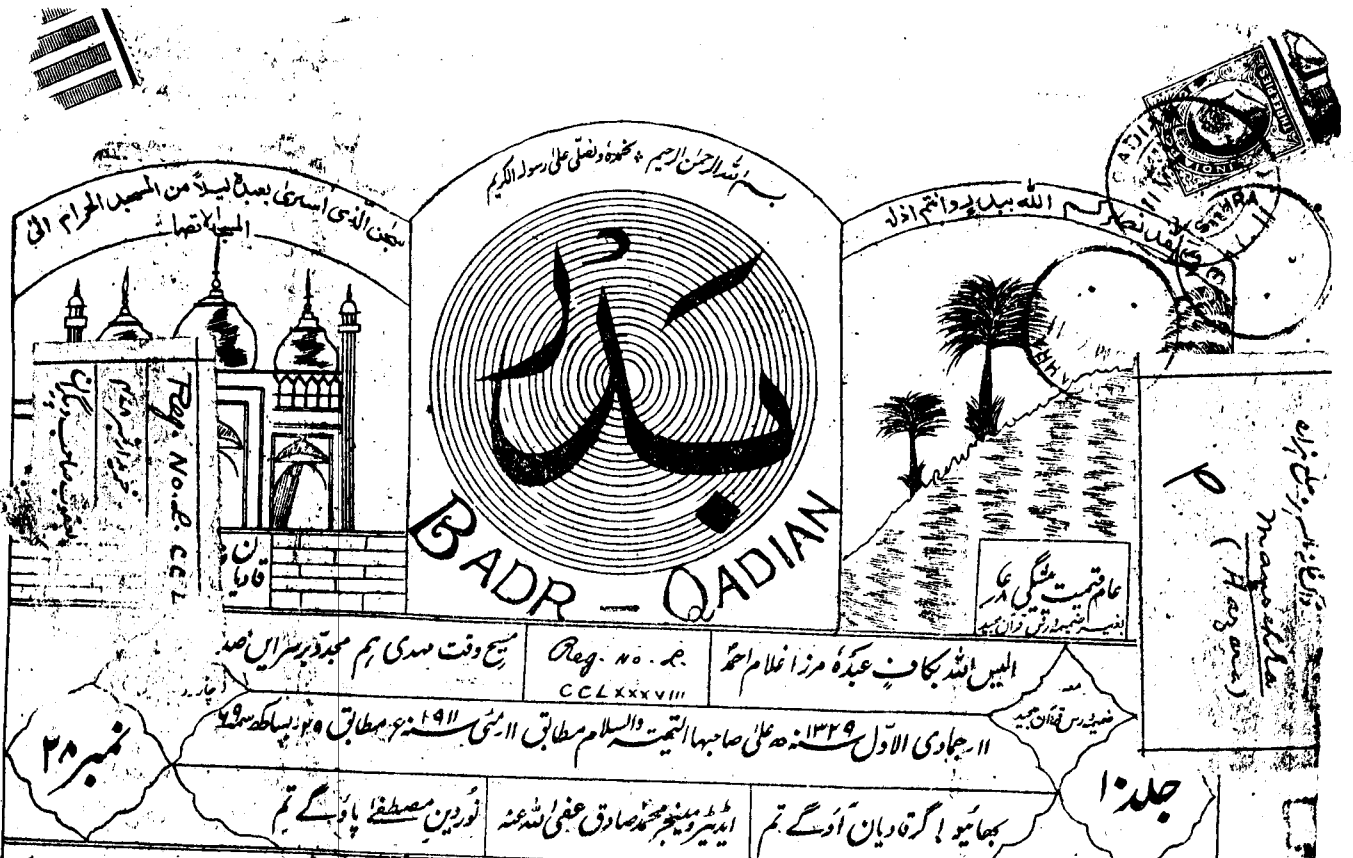 بسم اللہ الرحمٰن الرحیم ٭ نحمدہٗ ونصلّی علیٰ رسولہ الکریم
سبحٰن الّذی اسریٰ بعبدہٖ لیلاً من المسجد الحرام الیٰ
المسجد الاقصا
ولقد نصرکم اللہ ببدر وانتم اذلۃ
بدر
BADR — QADIAN
قادیان
Reg. No. L. CCL
Mansehra
(Hazara)
عام قیمت پیشگی
الیس اللہ بکافٍ عبدہٗ مرزا غلام احمدؑ
Reg. No. L.
CCLXXXVIII
مسیح وقت مہدی ہم مجدّد برسر ایں صد
ضمیمہ درس قرآن مجید
۱۱۔ جمادی الاوّل ۱۳۲۹سنہ ھ علیٰ صاحبہا التحیتہ والسلام مطابق ۱۱ رمئی ۱۹۱۱سنہ ء مطابق ۲۹۔ بساکھ سمہ ۶۹
جلد ۱۰
نمبر ۲۸
بھائیو! گر قادیان آؤگے تم
ایڈیٹر و مینیجر محمد صادق عفی اللہ عنہ
نُورِ دینِ مصطفےٰ پاؤگے تم